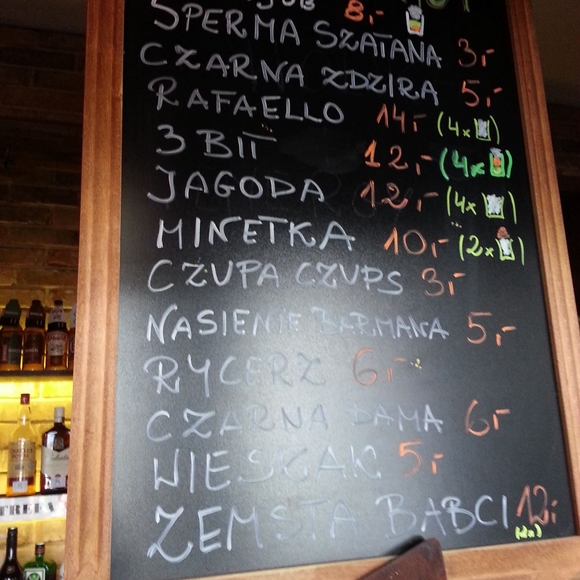 8,-
SPERMA SZATANA 3,-
CZARNA ZDZIRA 5,-
RAFAELLO 14,- (4x)
3 BIT 12,- (4x)
JAGODA 12,- (4x)
MINETKA 10,- (2x)
CZUPA CZUPS 3,-
NASIENIE BARMANA 5,-
RYCERZ 6,-
CZARNA DAMA 6,-
WIESZAK 5,-
ZEMSTA BABCI 12,-